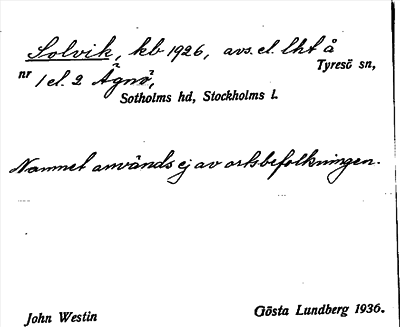 Solvik, kb 1926, avs. el. lht å
Tyresö sn,
nr 1 el. 2 Ägnö,
Sotholms hd, Stockholms l.
Namnet används ej av ortsbefolkningen.
John Westin
Gösta Lundberg 1936.